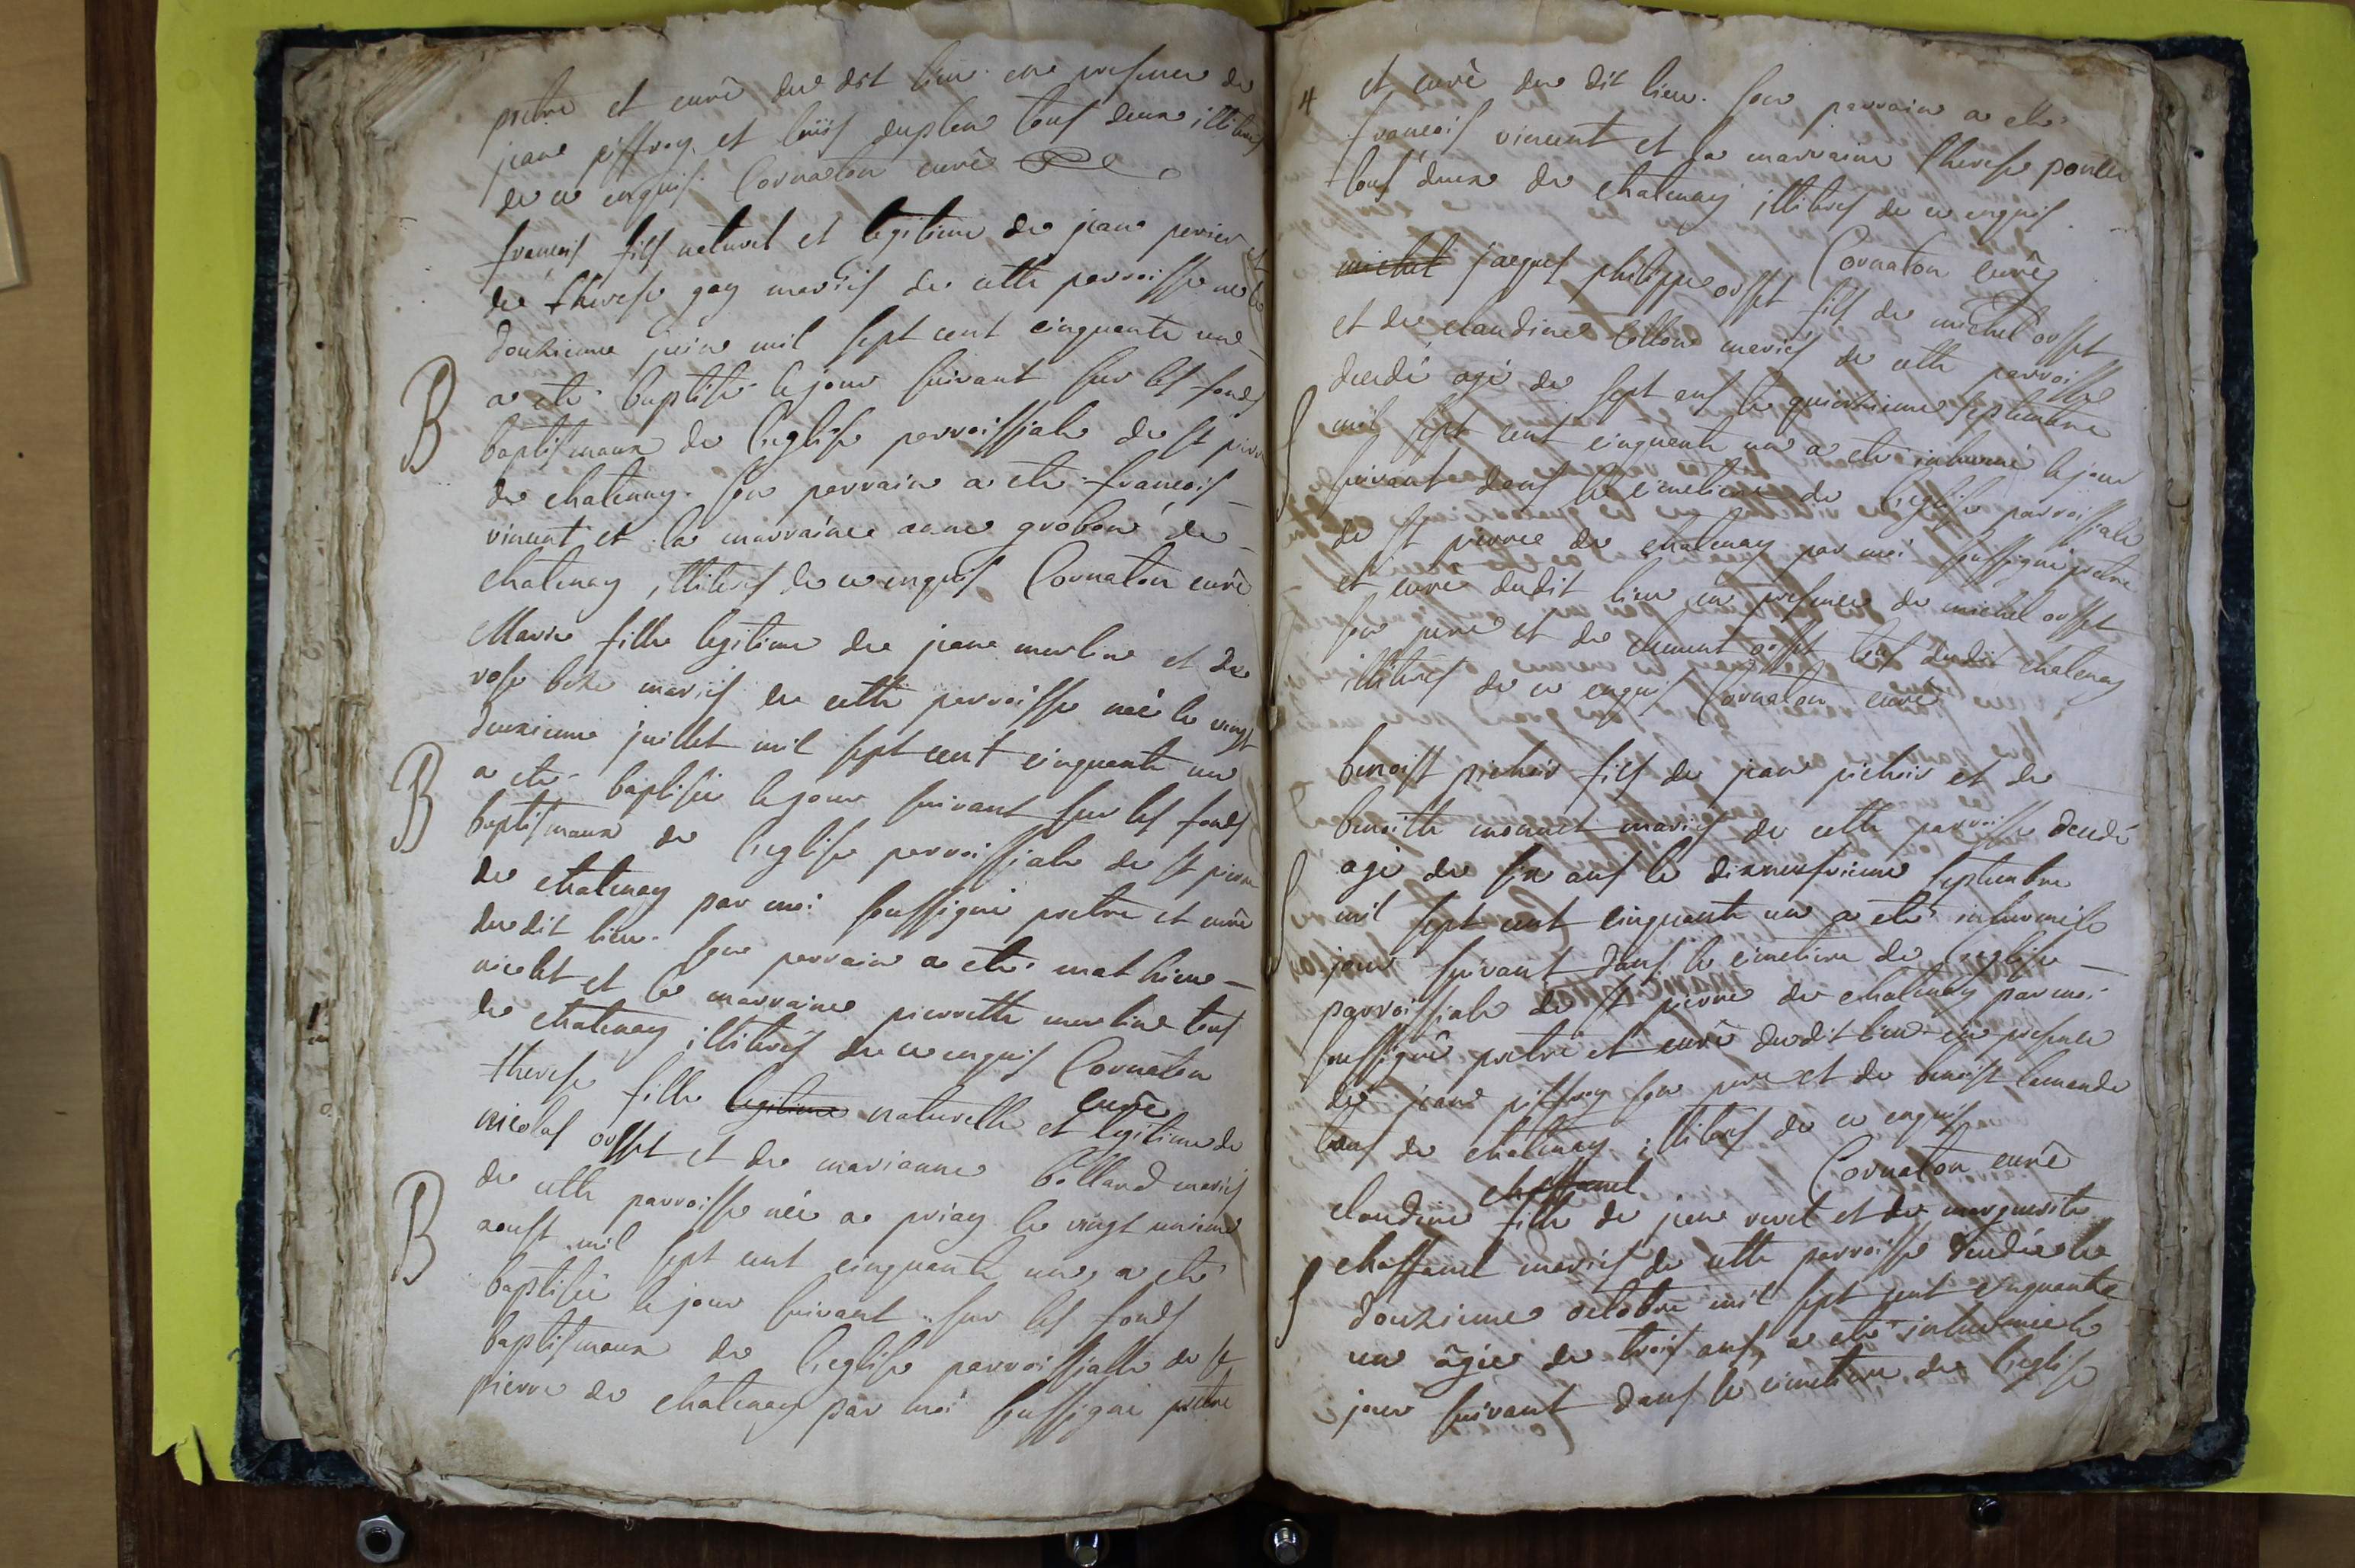 pretre et curé du dit lieu en presence de
jean piffroy et loüis duplen tous deux illiteres
de ce enquis. Cornaton curé
francois fils naturel et legitime de jean perier et
de therese gay mariés de cette parroisse né le
douzieme juin mil sept cent cinquante un
B
a eté baptisé le jour suivant sur les fonds
baptismaux de l'eglise parroissiale de st pierre
de chatenay. son parrain a eté francois
vincent et la marraine anne grobon de
chatenay, illiteres de ce enquis Cornaton curé
Marie fille legitime de jean merlin et de
rose mariés de cette parroisse née le vingt
deuxieme juillet mil sept cent cinquante un
B
a eté baptisée le jour suivant sur les fonds
baptismaux de l'eglise parroissiale de st pierre
de chatenay par moi soussigné pretre et curé
du dit lieu. son parrain a eté mathieu
nicolet et la marraine pierrette merlin tous
de chatenay illiterés de ce enquis Cornaton
curé
therese fille legitime naturelle et legitime de
nicolas ossset et de marianne bolland mariés
de cette parroisse née a priay le vingt unieme
B
aoust mil sept cent cinquante un, a eté
baptisée le jour suivant sur les fonds
baptismaux de l'eglise parroissialle de st
pierre de chatenay par moi soussigné pretre
4
et curé du dit lieu. son parrain a eté
francois vincent et sa marraine therese
tous deux de chatenay illiteres de ce enquis
Cornaton curé
michel jacques philippe osset fils de michel osset
et de claudine collon mariés de cette parroisse
decedé agé de sept ans le quinzieme septembre
S
mil sept cent cinquante un a eté inhumé le jour
suivant dans le cimetiere de l'eglise parroissiale
de st pierre de chatenay par moi soussigné pretre
et curé dudit lieu en presence de michel osset
son pere et de clement osset tous dudit chatenay
illiteres de ce enquis Cornaton curé
benoist pichoir fils de jean pichoir et de
benoitte monnet mariés de cette parroisse decedé
agé de six ans le dixneufvieme septembre
S
mil sept cent cinquante un a eté inhumé le
jour suivant dans le cimetiere de l'eglise
parroissiale de st pierre de chatenay par moi
soussigné pretre et curé dudit lieu en presence
de jean piffroy son pere et de benoist
tous de chatenay illiteres de ce enquis
Cornaton curé
chaffanel
claudine fille de jean revet et de marguerite
chaffanel mariés de cette parroisse decedée le
S
douzieme octobre mil sept cent cinquante
un agée de trois ans, a eté inhumée le
jour suivant dans le cimetiere de l'eglise